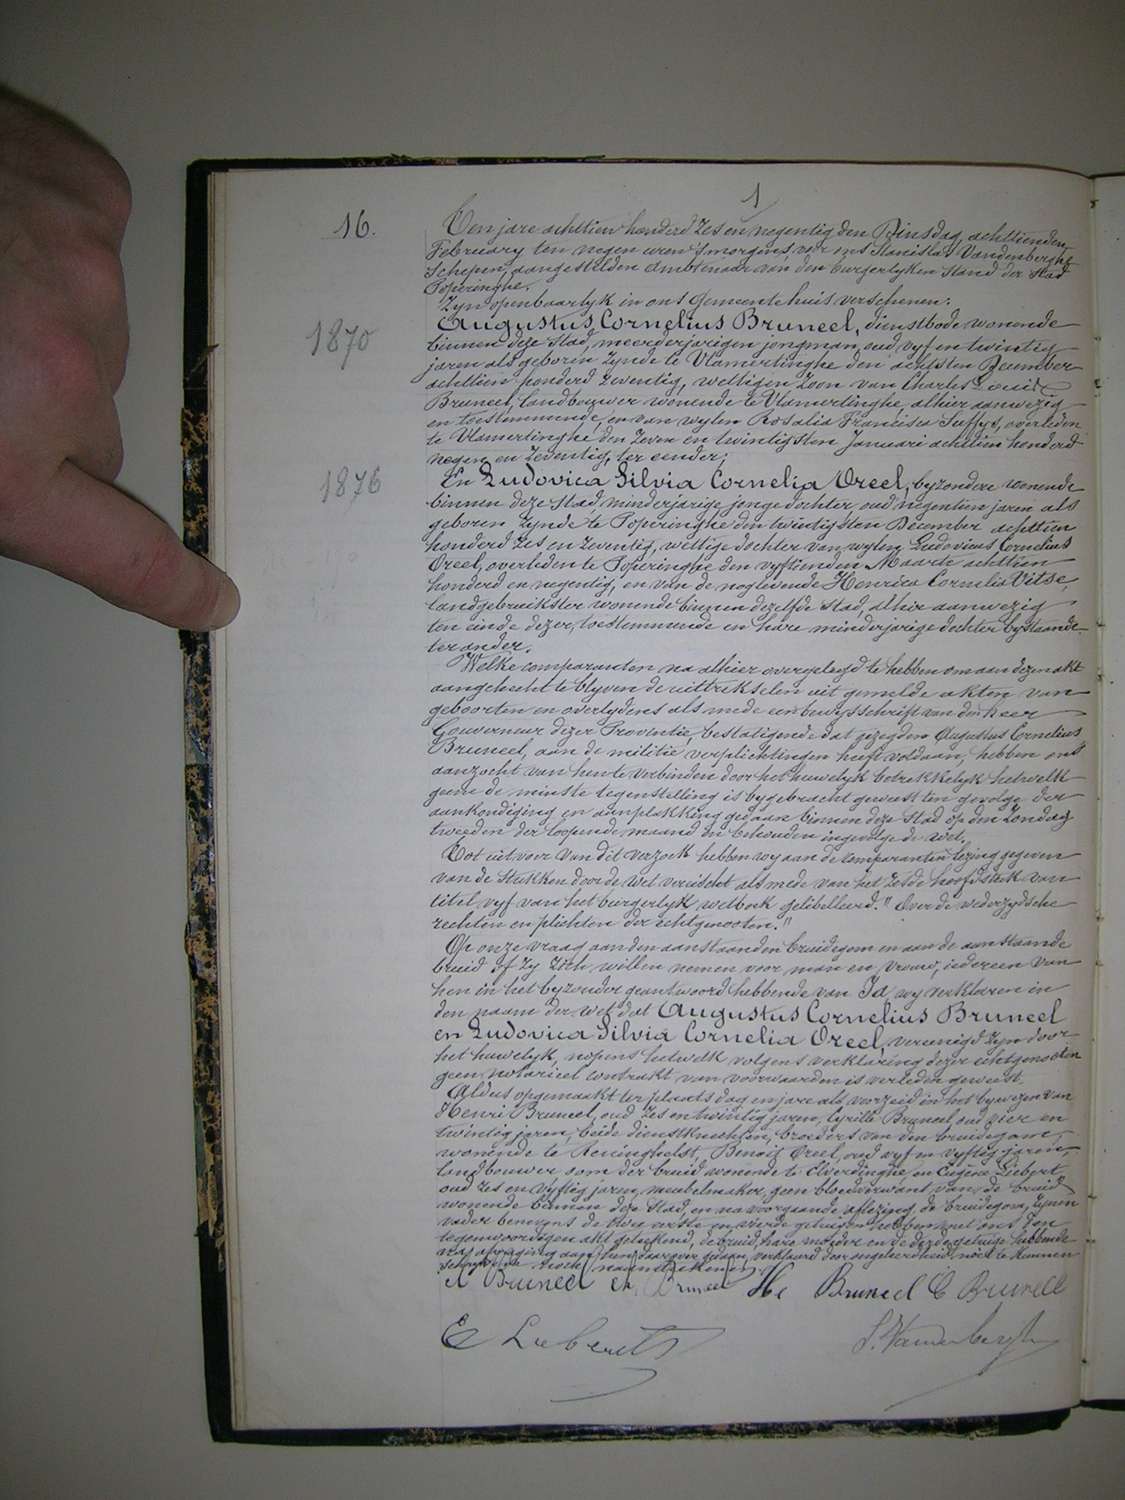 1
16.
Ten jare achttien honderd zes en negentig den Dinsdag, achttienden
February ten negen uren 's morgens, voor ons Stanislas Vandenberghe
Schepen, aangestelden ambtenaar van den burgerlyken stand der stad
Poperinghe.
Zyn openbaarlyk in ons Gemeentehuis verschenen:
1870
Augustus Cornelius Bruneel, dienstbode wonende
binnen deze stad, meerderjarigen jongman, oud vyf en twintig
jaren als geboren zynde te Vlamertinghe den achtsten December
achttien honderd zeventig, wettigen zoon van Charles Louis
Bruneel, landbouwer wonende te Vlamertinghe, alhier aanwezig
en toestemmende, en van wylen Rosalia Francisca Suffys, overleden
te Vlamertinghe den zeven en twintigsten January achttien honderd
negen en zeventig, ter eender;
1876
En Ludovica Silvia Cornelia Oreel, byzondere wonende
binnen deze stad minderjarige jonge dochter oud negentien jaren als
geboren zynde te Poperinghe den twintigsten December achttien
honderd zes en zeventig, wettige dochter van wylen Ludovicus Cornelius
Oreel, overleden te Poperinghe den vyftienden Maarte achttien
honderd en negentig, en van de nog levende Henrica Cornelia Vitse,
landgebruikster wonende binnen dezelfde stad, alhier aanwezig
ten einde dezer, toestemmende en hare minderjarige dochter bystaande
ter ander.
Welke comparanten na alhier overgelegd te hebben om aan dezen akt
aangehecht te blyven de uittrekselen uit gemelde akten van
geboorten en overlydens als mede een bewysschrift van den heer
Gouverneur dezer Provintie, bestatigende dat gezegden Augustus Cornelius
Bruneel, aan de militie verplichtingen heeft voldaan, hebben ons
aanzocht van hen te verbinden door het huwelyk betrekkelyk hetwelk
geene de minste tegenstelling is bygebracht geweest ten gevolge der
aankondiging en aanplakking gedaan binnen deze stad op den Zondag
tweeden der loopende maand en behouden ingevolge de wet.
Tot uitvoer van dit verzoek hebben wy aan de comparanten lezing gegeven
van de stukken door de wet vereischt als mede van het zesde hoofdstuk van
titel vyf van het burgerlyk wetboek gelibelleerd: "Over de wederzydsche
rechten en plichten der echtgenooten."
Op onze vraag aan den aanstaanden bruidegom en aan de aanstaande
bruid of zy zich willen nemen voor man en vrouw, iedereen van
hen in het byzonder geantwoord hebbende van Ja, wy verklaren in
den naam der wet dat Augustus Cornelius Bruneel
en Ludovica Silvia Cornelia Oreel, vereenigd zyn door
het huwelyk, nopens hetwelk volgens verklaring dezer echtgenooten
geen notarieel contrakt van voorwaarden is verleden geweest.
Aldus opgemaakt ter plaats dag en jare als voorzeid in het bywezen van
Henri Bruneel, oud zes en twintig jaren, Cyrille Bruneel, oud vier en
twintig jaren, beide dienstknechten, broeders van den bruidegom,
wonende te Reninghelst, Benoit Oreel, oud vyf en vyftig jaren,
landbouwer oom der bruid wonende te Elverdinghe, en Eugène Liebert,
oud zes en vyftig jaren, meubelmaker, geen bloedverwant van de bruid
wonende binnen deze stad, en na voorgaande aflezing, de bruidegom, zynen
vader benevens de twee eerste en vierde getuigen hebben met ons den
tegenwoordigen akt geteekend, de bruid, hare moeder en de derde getuige hebbende
na afvraging aan hen daarover gedaan, verklaard door ongeleerdheid noch te kunnen
schryven noch naamteekenen.
A Bruneel Ch. Bruneel He Bruneel C Bruneel
E Lieberts S. Vandenberghe